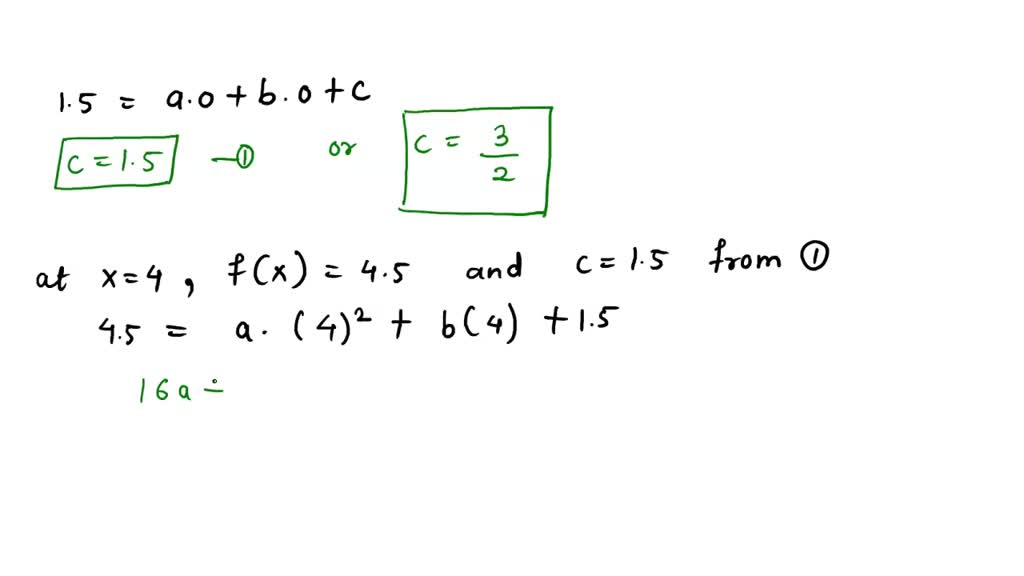 1.5 = a.0 + b.0 + c
c = 1.5 —① or c = 3/2
at x=4, f(x) = 4.5 and c = 1.5 from ①
4.5 = a. (4)² + b(4) + 1.5
16a